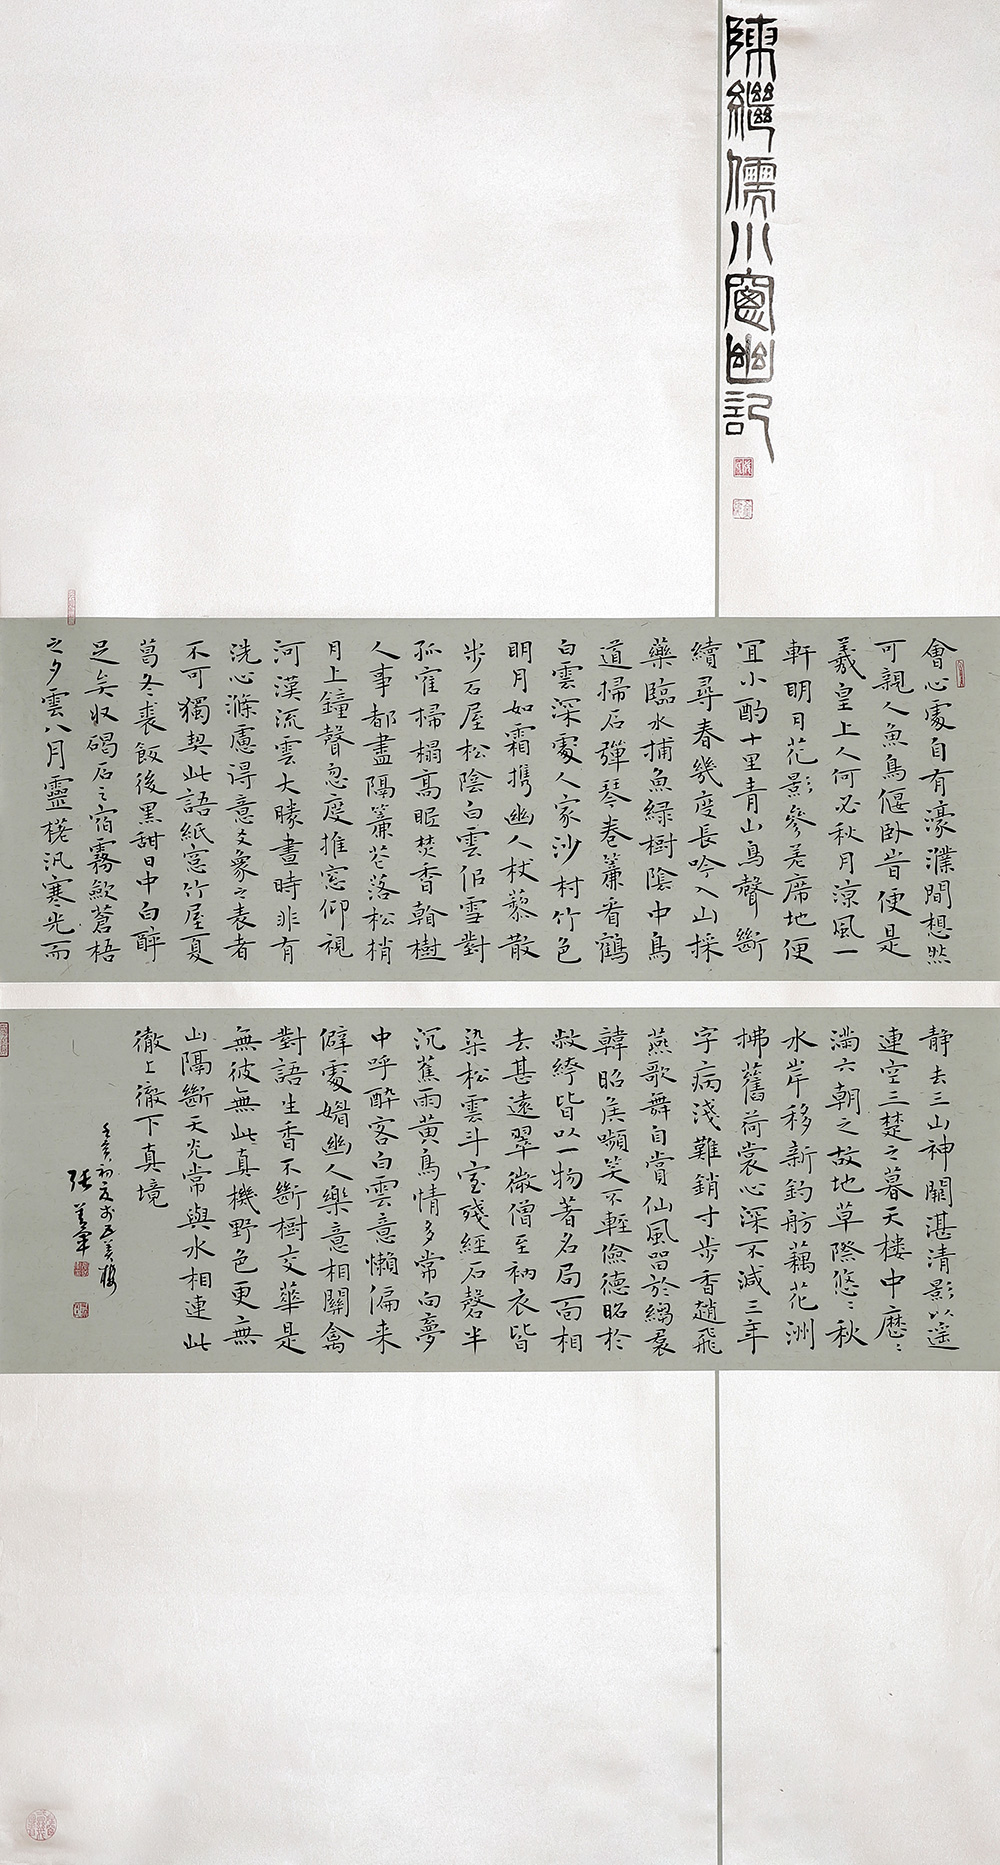 陳繼儒小窗幽記
會心處自有濠濮間想然
可親人魚鳥偃卧皆便是
羲皇上人何必秋月涼風一
軒明月花影參差席地便
宜小酌十里青山鳥聲斷
續尋春幾度長吟入山採
藥臨水捕魚綠樹陰中鳥
道掃石彈琴卷簾看鶴
白雲深處人家沙村竹色
明月如霜攜幽人杖藜散
步石屋松陰白雲侶雪對
孤寉掃榻高眠焚香翰樹
人事都盡隔簾花落松梢
月上鐘聲忽度推窓仰視
河漢流雲大勝晝時非有
洗心滌慮得意爻象之表者
不可獨契此語紙窓竹屋夏
葛冬裘飯後黑甜日中白醉
足矣收碣石之宿霧斂蒼梧
之夕雲八月靈槎汎寒光而
靜去三山神闕湛清影以遥
連空三楚之暮天樓中歷〻
滿六朝之故地草際悠〻秋
水岸移新釣舫藕花洲
拂舊荷裳心深不減三年
字病淺難銷寸步香趙飛
燕歌舞自賞仙風留於縐裠
韓昭矦嚬笑不輕儉德昭於
敝絝皆以一物著名局面相
去甚遠翠微僧至衲衣皆
染松雲斗室殘經石磬半
沉蕉雨黃鳥情多常向夢
中呼醉客白雲意懶偏来
僻處媚幽人樂意相關禽
對語生香不斷樹交華是
無彼無此真機野色更無
山隔斷天光常與水相連此
徹上徹下真境